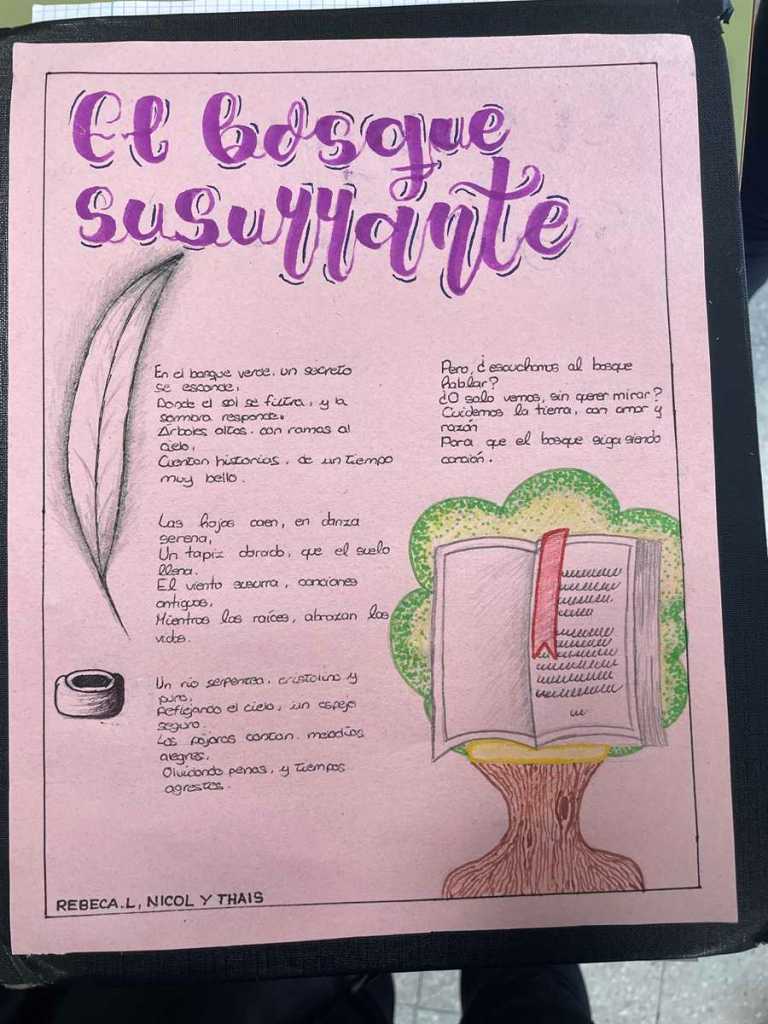 El bosque
susurrante
En el bosque verde, un secreto
se esconde,
Donde el sol se filtra, y la
sombra responde.
Árboles altos, con ramas al
cielo,
Cuentan historias, de un tiempo
muy bello.
Las hojas caen, en danza
serena,
Un tapiz dorado, que el suelo
llena.
El viento susurra, canciones
antiguas,
Mientras las raíces, abrazan las
vidas.
Un río serpentea, cristalino y
puro,
Reflejando el cielo, un espejo
seguro.
Los pájaros cantan, melodías
alegres,
Olvidando penas, y tiempos
agrestes.
Pero, ¿escuchamos al bosque
hablar?
¿O solo vemos, sin querer mirar?
Cuidemos la tierra, con amor y
razón
Para que el bosque siga siendo
canción.
REBECA.L, NICOL Y THAIS